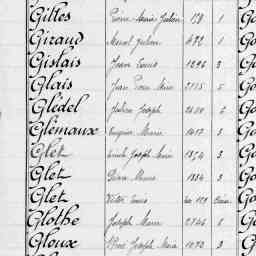 Gilles Pierre Marie Julien 178 1 Go
Giraud Marcel Julien 472 1 Go
Gislais Jean Louis 1296 3 Go
Glais Jean Pierre Marie 2115 5 Go
Glédel Julien Joseph Go
Glémaux Eugène Marie 1417 3 Go
Glet Joseph Marie 1374 3 Go
Glet Pierre Marie 1384 3 Go
Glet Victor Louis Go
Glothe Joseph Marie 2746 Go
Gloux Joseph Marie 1073 3 Go